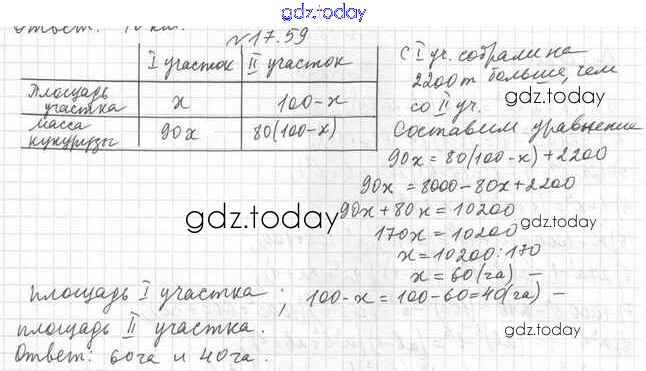 gdz.today
Ответ: 40 км.
№17.59
I участок II участок
Площадь участка x 100-x
Масса кукурузы 90x 80(100-x)
С I уч. собрали на
2200т больше, чем
со II уч.
gdz.today
Составим уравнение
90x = 80(100-x)+2200
90x = 8000-80x+2200
gdz.today
90x+80x = 10200
170x = 10200
x = 10200:170
x = 60(га) –
площадь I участка ; 100-x = 100-60=40(га) –
площадь II участка.
gdz.today
Ответ: 60га и 40га.